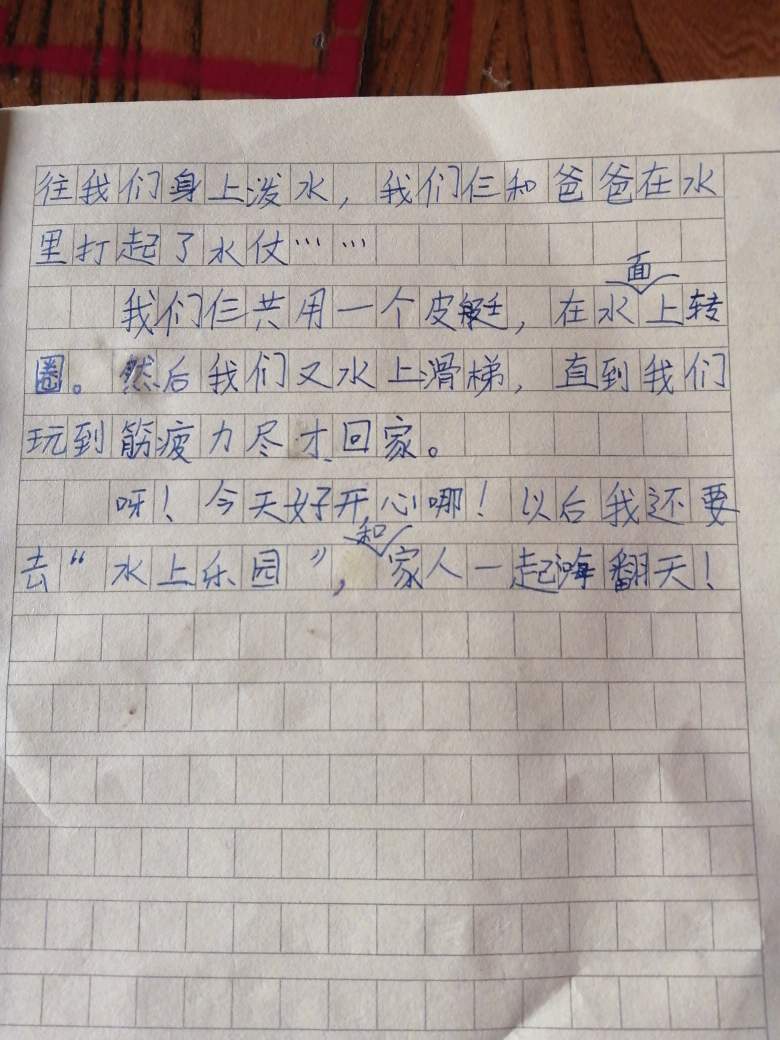 往我们身上泼水，我们仨和爸爸在水
里打起了水仗……
我们仨共用一个皮艇，在水面上转
圈。然后我们又水上滑梯，直到我们
玩到筋疲力尽才回家。
呀！今天好开心哪！以后我还要
去“水上乐园”，和家人一起嗨翻天！